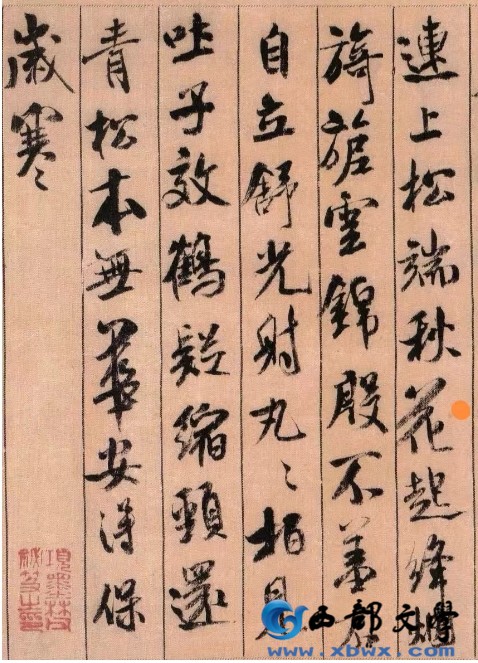 連上松端秋花起絳煙
旖旎雲錦殷不羞不
自立舒光射丸〻柏見
吐子效鶴疑縮頸還
青松本無華安得保
歲寒〻
項墨林父秘笈之印
西部文學
www.xbwx.com